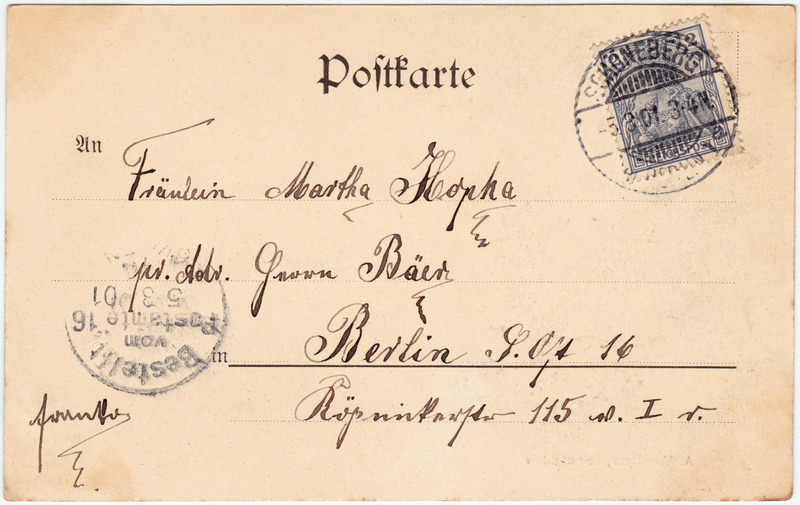 Postkarte
SCHÖNEBERG
5.3.01. 3-4N.
An
Fräulein Martha Hopha
pr. Adr. Herrn Bäer
Bestellt
vom
Postamte 16
5 3 01
in Berlin S. Ost 16
Köpnickerstr 115 v. I r.
franko